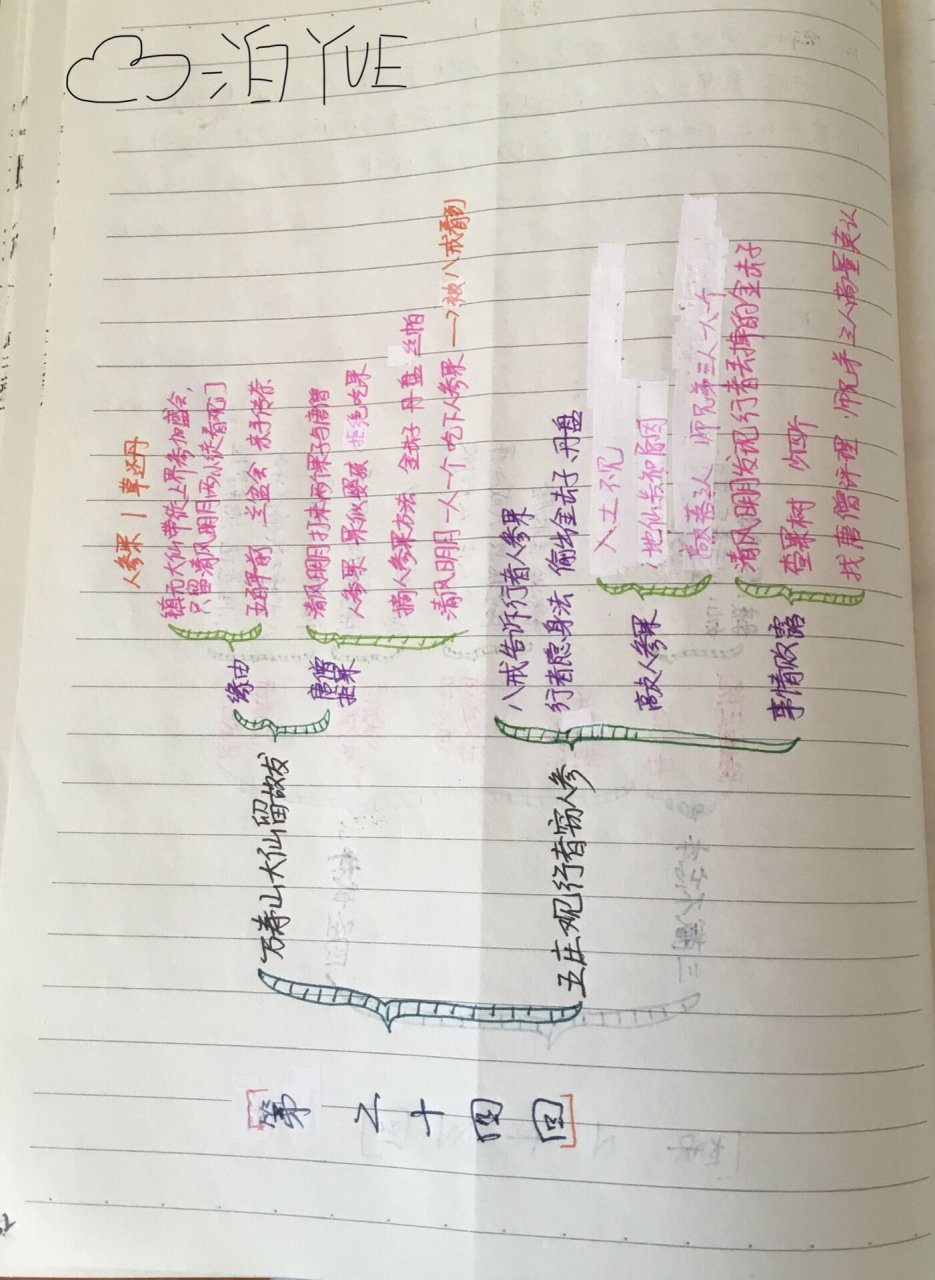 泊YUE
[第二十四回]
万寿山大仙留故友
缘由
人参果|草还丹
镇元大仙带徒上界参加盛会,
只留清风明月两小徒看观门
五百年前 兰盆会 亲手传茶
唐僧
拒果
清风明月打来两个果子与唐僧
人参果 果似婴孩 拒绝吃果
摘人参果方法 金击子 丹盘 丝帕
清风明月一人一个 吃下人参果 —→被八戒看到
五庄观行者窃人参
八戒告诉行者人参果
行者隐身法 偷出金击子、丹盘
高次人参果
入土不见
土地仙长和原因
师兄弟三人一人一个
事情败露
清风明月发现行者丢掉的金击子
查果树 少四个
找唐僧评理 师兄弟三人商量莫认